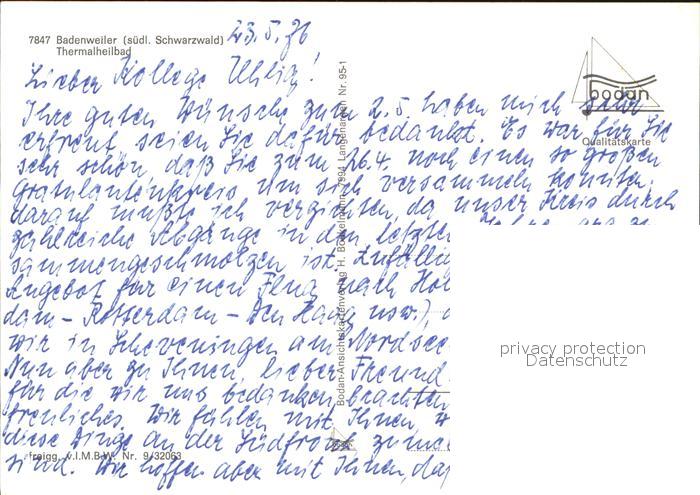 7847 Badenweiler (südl. Schwarzwald)
Thermalheilbad
23.5.76
Lieber Kollege Uhlig!
Ihre guten Wünsche zum 2.5. haben mich sehr
erfreut, seien Sie dafür bedankt. Es war für Sie
sehr schön, daß Sie zum 26.4. noch einen so großen
Gratulantenkreis um sich versammeln konnten,
darauf mußte ich verzichten, da unser Kreis durch
zahlreiche Abgänge in den letzten Jahre
sammengeschmolzen ist. Zufällig
Angebot für einen Flug nach Hol
dam - Rotterdam - Den Haag usw.),
wir in Scheveningen am Nordsee
Nun aber zu Ihnen, lieber Freund
für die wir uns bedanken, brachten
freuliches. Wir fühlen mit Ihnen,
diese Dinge an der Südfront
sind. Wir hoffen aber mit Ihnen, daß
bodan
Qualitätskarte
Bodan-Ansichtskartenverlag H. Bockelmann, 7994 Langenargen Nr. 95-1
freigg. v.I.M.B.W. Nr. 9/32063
privacy protection
Datenschutz